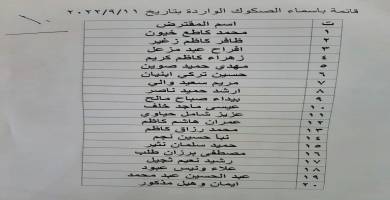 قائمة باسماء الصكوك الواردة بتاريخ ٢٠٢٢/٩/١١
ت اسم المقترض
١ محمد كاطع خيون
٢ ظافر كاظم زغير
٣ افراح عبد مزعل
٤ زهراء كاظم كريم
٥ مهدي حميد صوين
٦ حسين تركي
٧ مريم سعيد والي
٨ ارشد حميد ناصر
٩ بيداء صباح مالح
١٠ عيسى ماجد خلف
١١ عزيز شامل حياوي
١٢ عمران هاشم كاظم
١٣ محمد رزاق كاظم
١٤ نبا حسين نجم
١٥ حميد سلمان نثير
١٦ مصطفى برزان طلب
١٧ رشيد نعيم ثجيل
١٨ علاء ونيس عبود
١٩ عبد الحسين عبد محمد
٢٠ ايمان وهيل مذكور